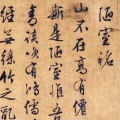 陋室銘
山不在高有僊
斯是陋室惟吾
青談笑有鴻儒
經無絲竹之亂